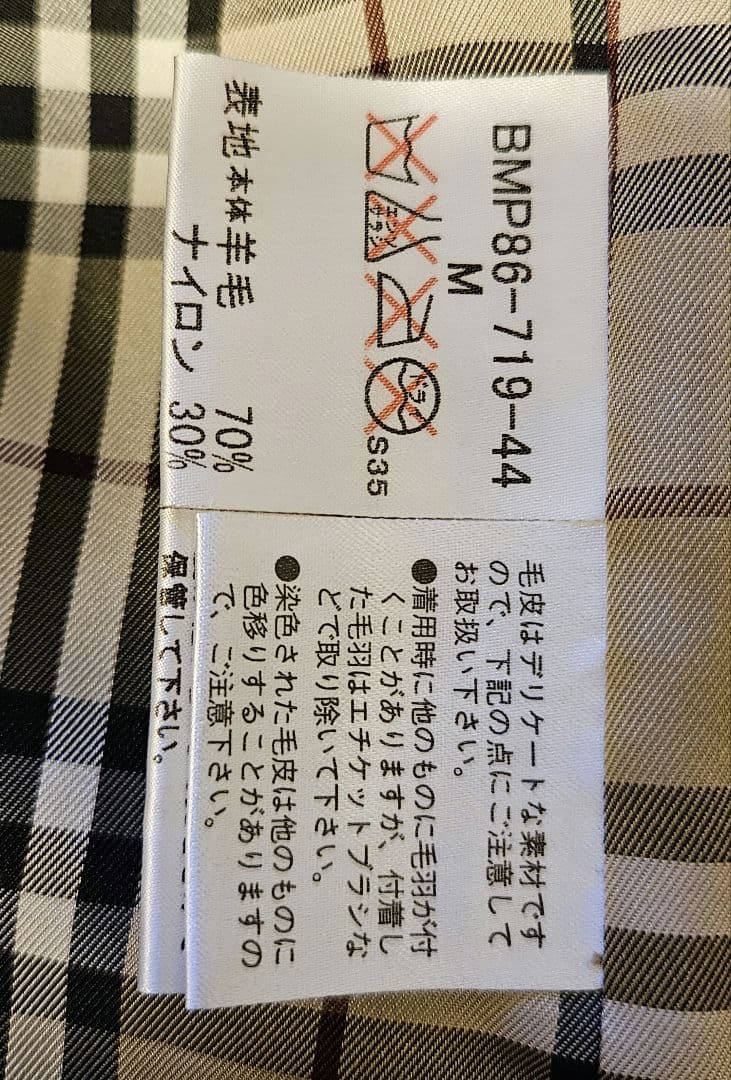 BMP86-719-44
M
エンソ
サラシ
ドライ
S35
表地 本体 羊毛 70%
ナイロン 30%
毛皮はデリケートな素材です
ので、下記の点にご注意して
お取扱い下さい。
●着用時に他のものに毛羽が付
くことがありますが、付着し
た毛羽はエチケットブラシな
どで取り除いて下さい。
●染色された毛皮は他のものに
色移りすることがありますの
で、ご注意下さい。
保管して下さい。